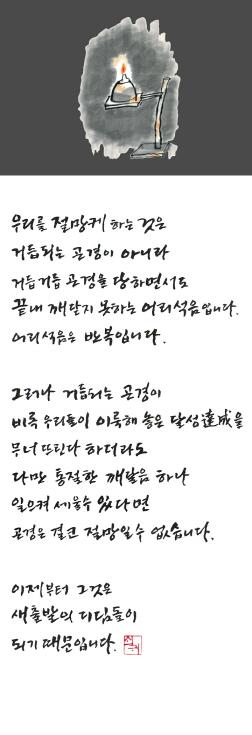 우리를 절망케 하는 것은
거듭되는 곤경이 아니라
거듭거듭 곤경을 당하면서도
끝내 깨닫지 못하는 어리석음입니다.
어리석음은 반복입니다.
그러나 거듭되는 곤경이
비록 우리들이 이룩해 놓은 달성達成을
무너뜨린다 하더라도
다만 통절한 깨달음 하나
일으켜 세울수 있다면
곤경은 결코 절망일수 없습니다.
이제부터 그것은
새출발의 디딤돌이
되기 때문입니다.